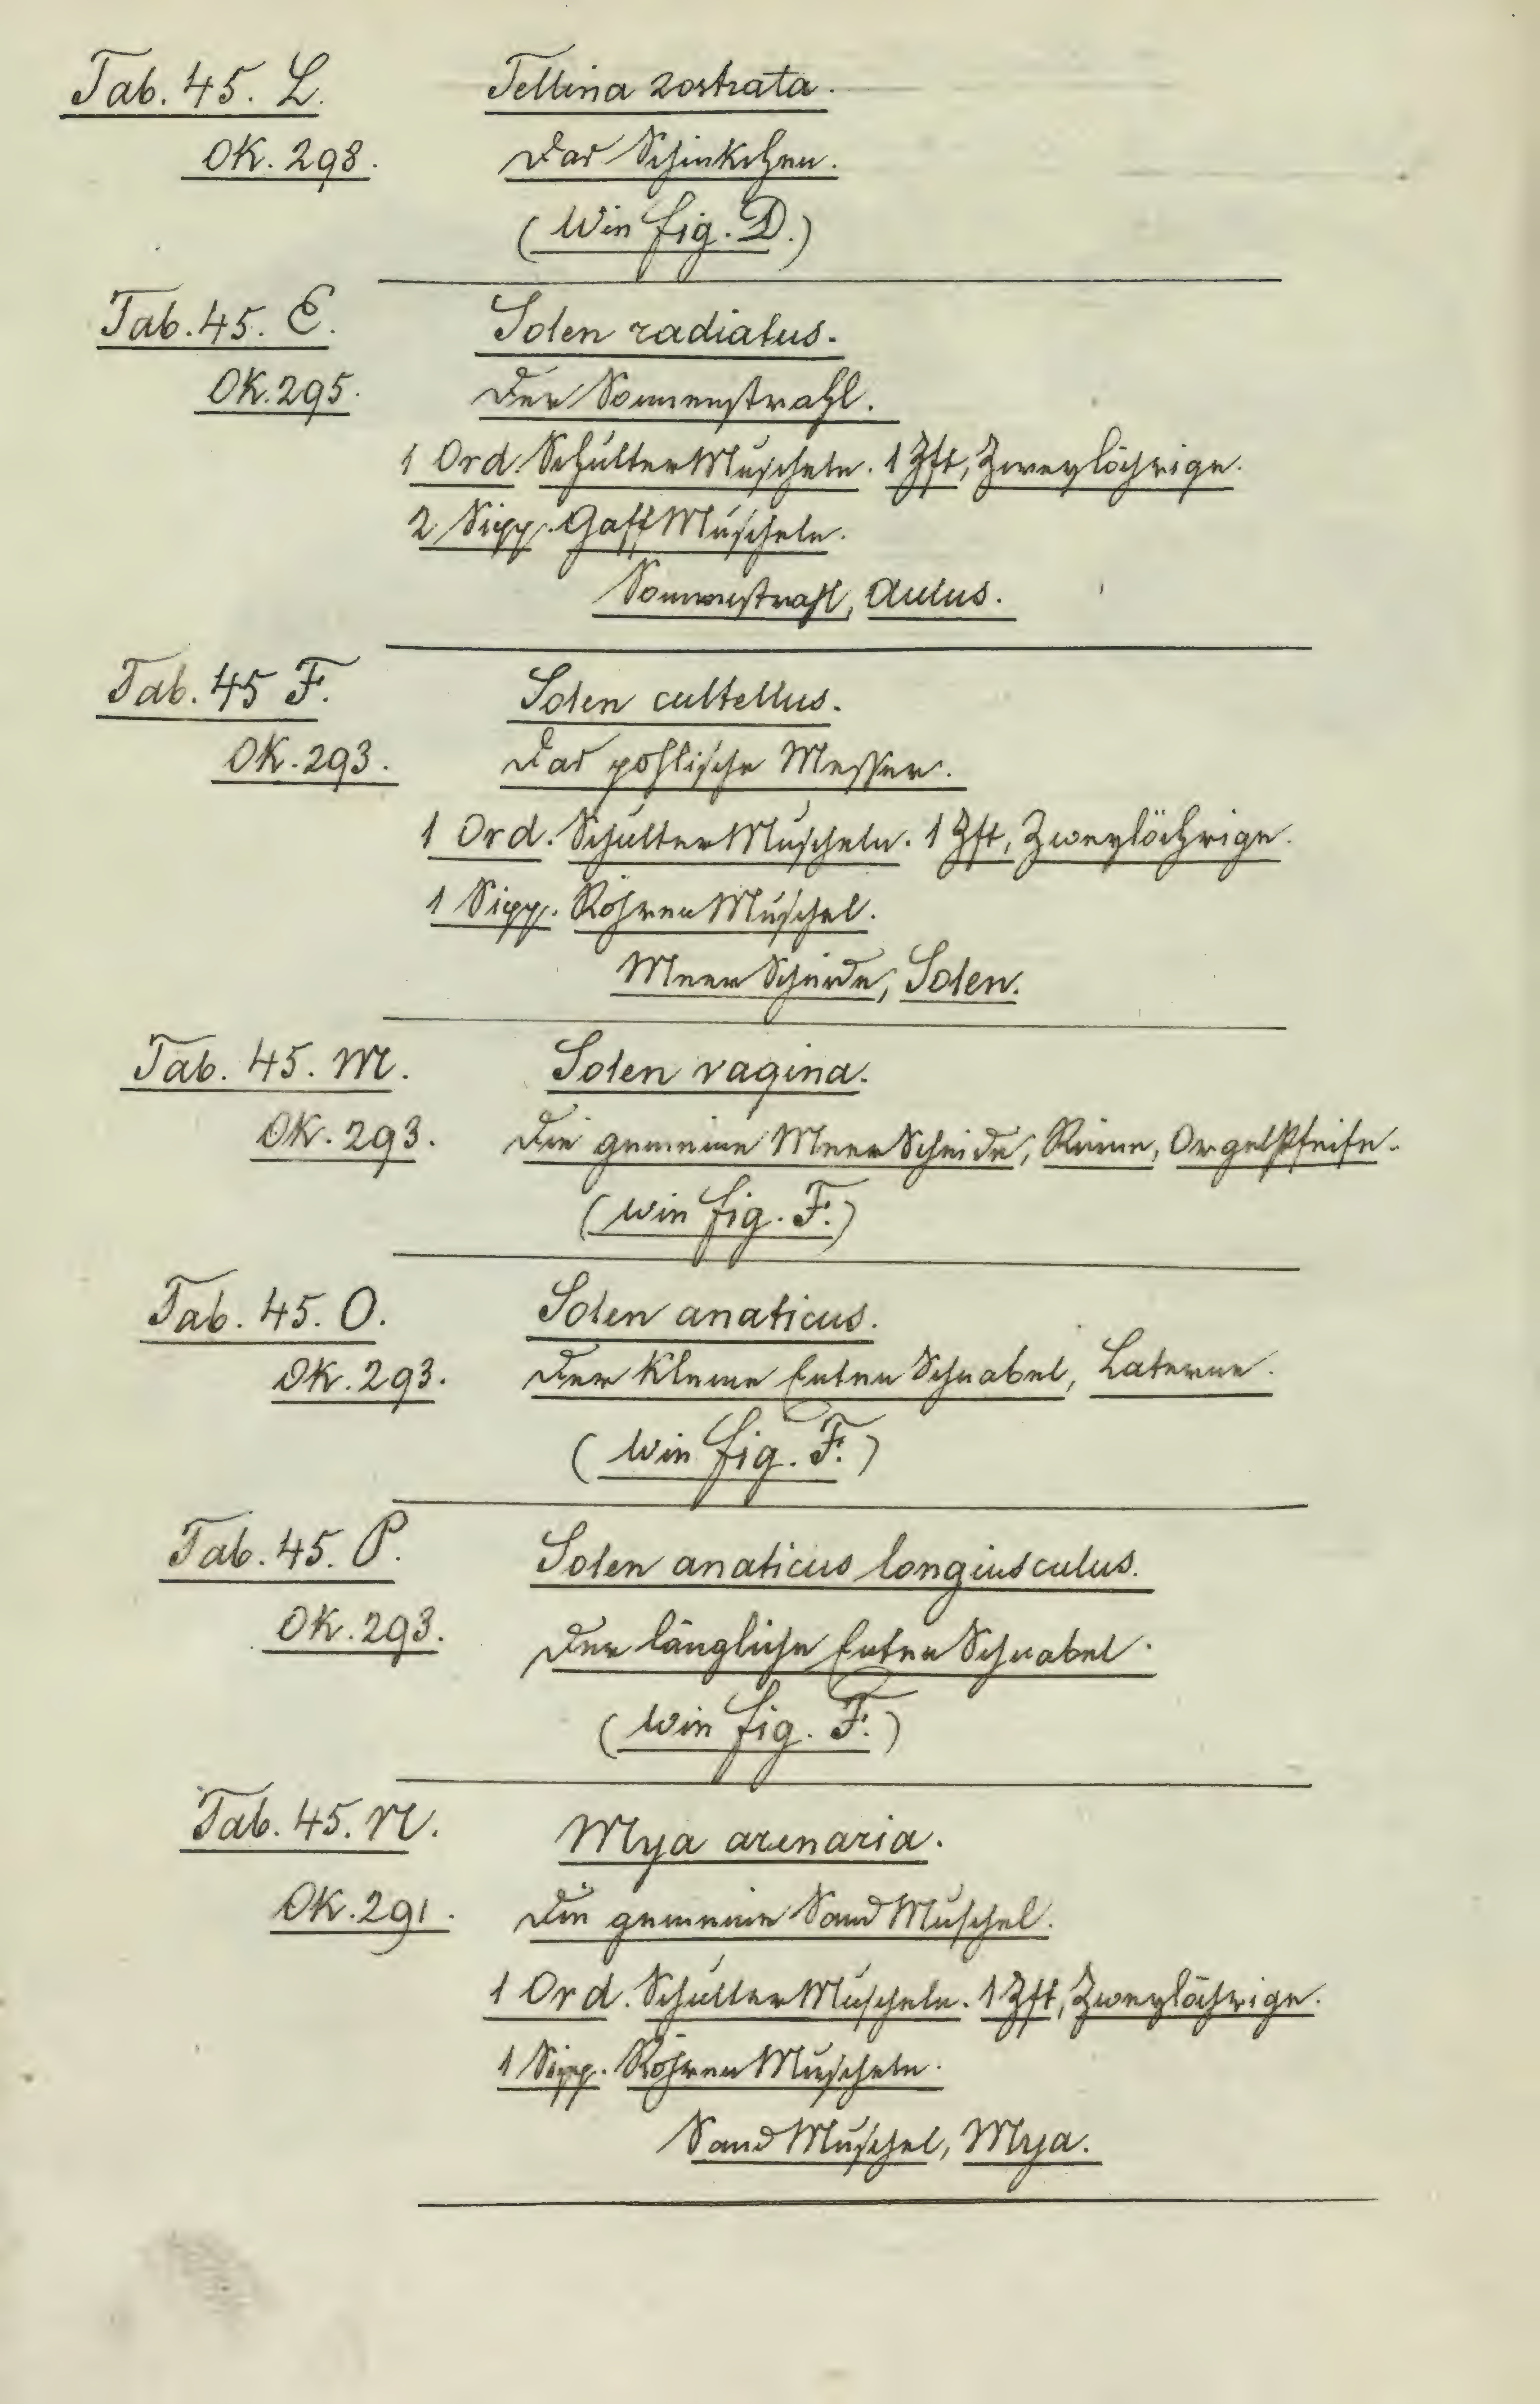 Tab. 45. L. Tellina rostrata.
OK. 298. Das Schinkchen.
(Wie fig. D.)
Tab. 45. E. Solen radiatus.
OK. 295. Der Sonnenstrahl.
1 Ord. SchulterMuscheln. 1 Zft, Zweylöchrige.
2 Sipp. GaffMuscheln.
Sonnenstrahl, Aulus.
Tab. 45 F. Solen cultellus.
OK. 293. Das pohlische Messer.
1 Ord. SchulterMuscheln. 1 Zft, Zweylöchrige.
1 Sipp. RöhrenMuschel.
MeerScheide, Solen.
Tab. 45. M. Solen vagina.
OK. 293. Die gemeine MeerScheide, Rinne, OrgelPfeife.
(wie fig. F.)
Tab. 45. O. Solen anaticus.
OK. 293. Der kleine EntenSchnabel, Laterne.
(Wie fig. F.)
Tab. 45. P. Solen anaticus longiusculus.
OK. 293. Der längliche EntenSchnabel.
(wie fig. F.)
Tab. 45. N. Mya arenaria.
OK. 291. Die gemeine SandMuschel.
1 Ord. SchulterMuscheln. 1 Zft, Zweylöchrige.
1 Sipp. RöhrenMuscheln.
SandMuschel, Mya.